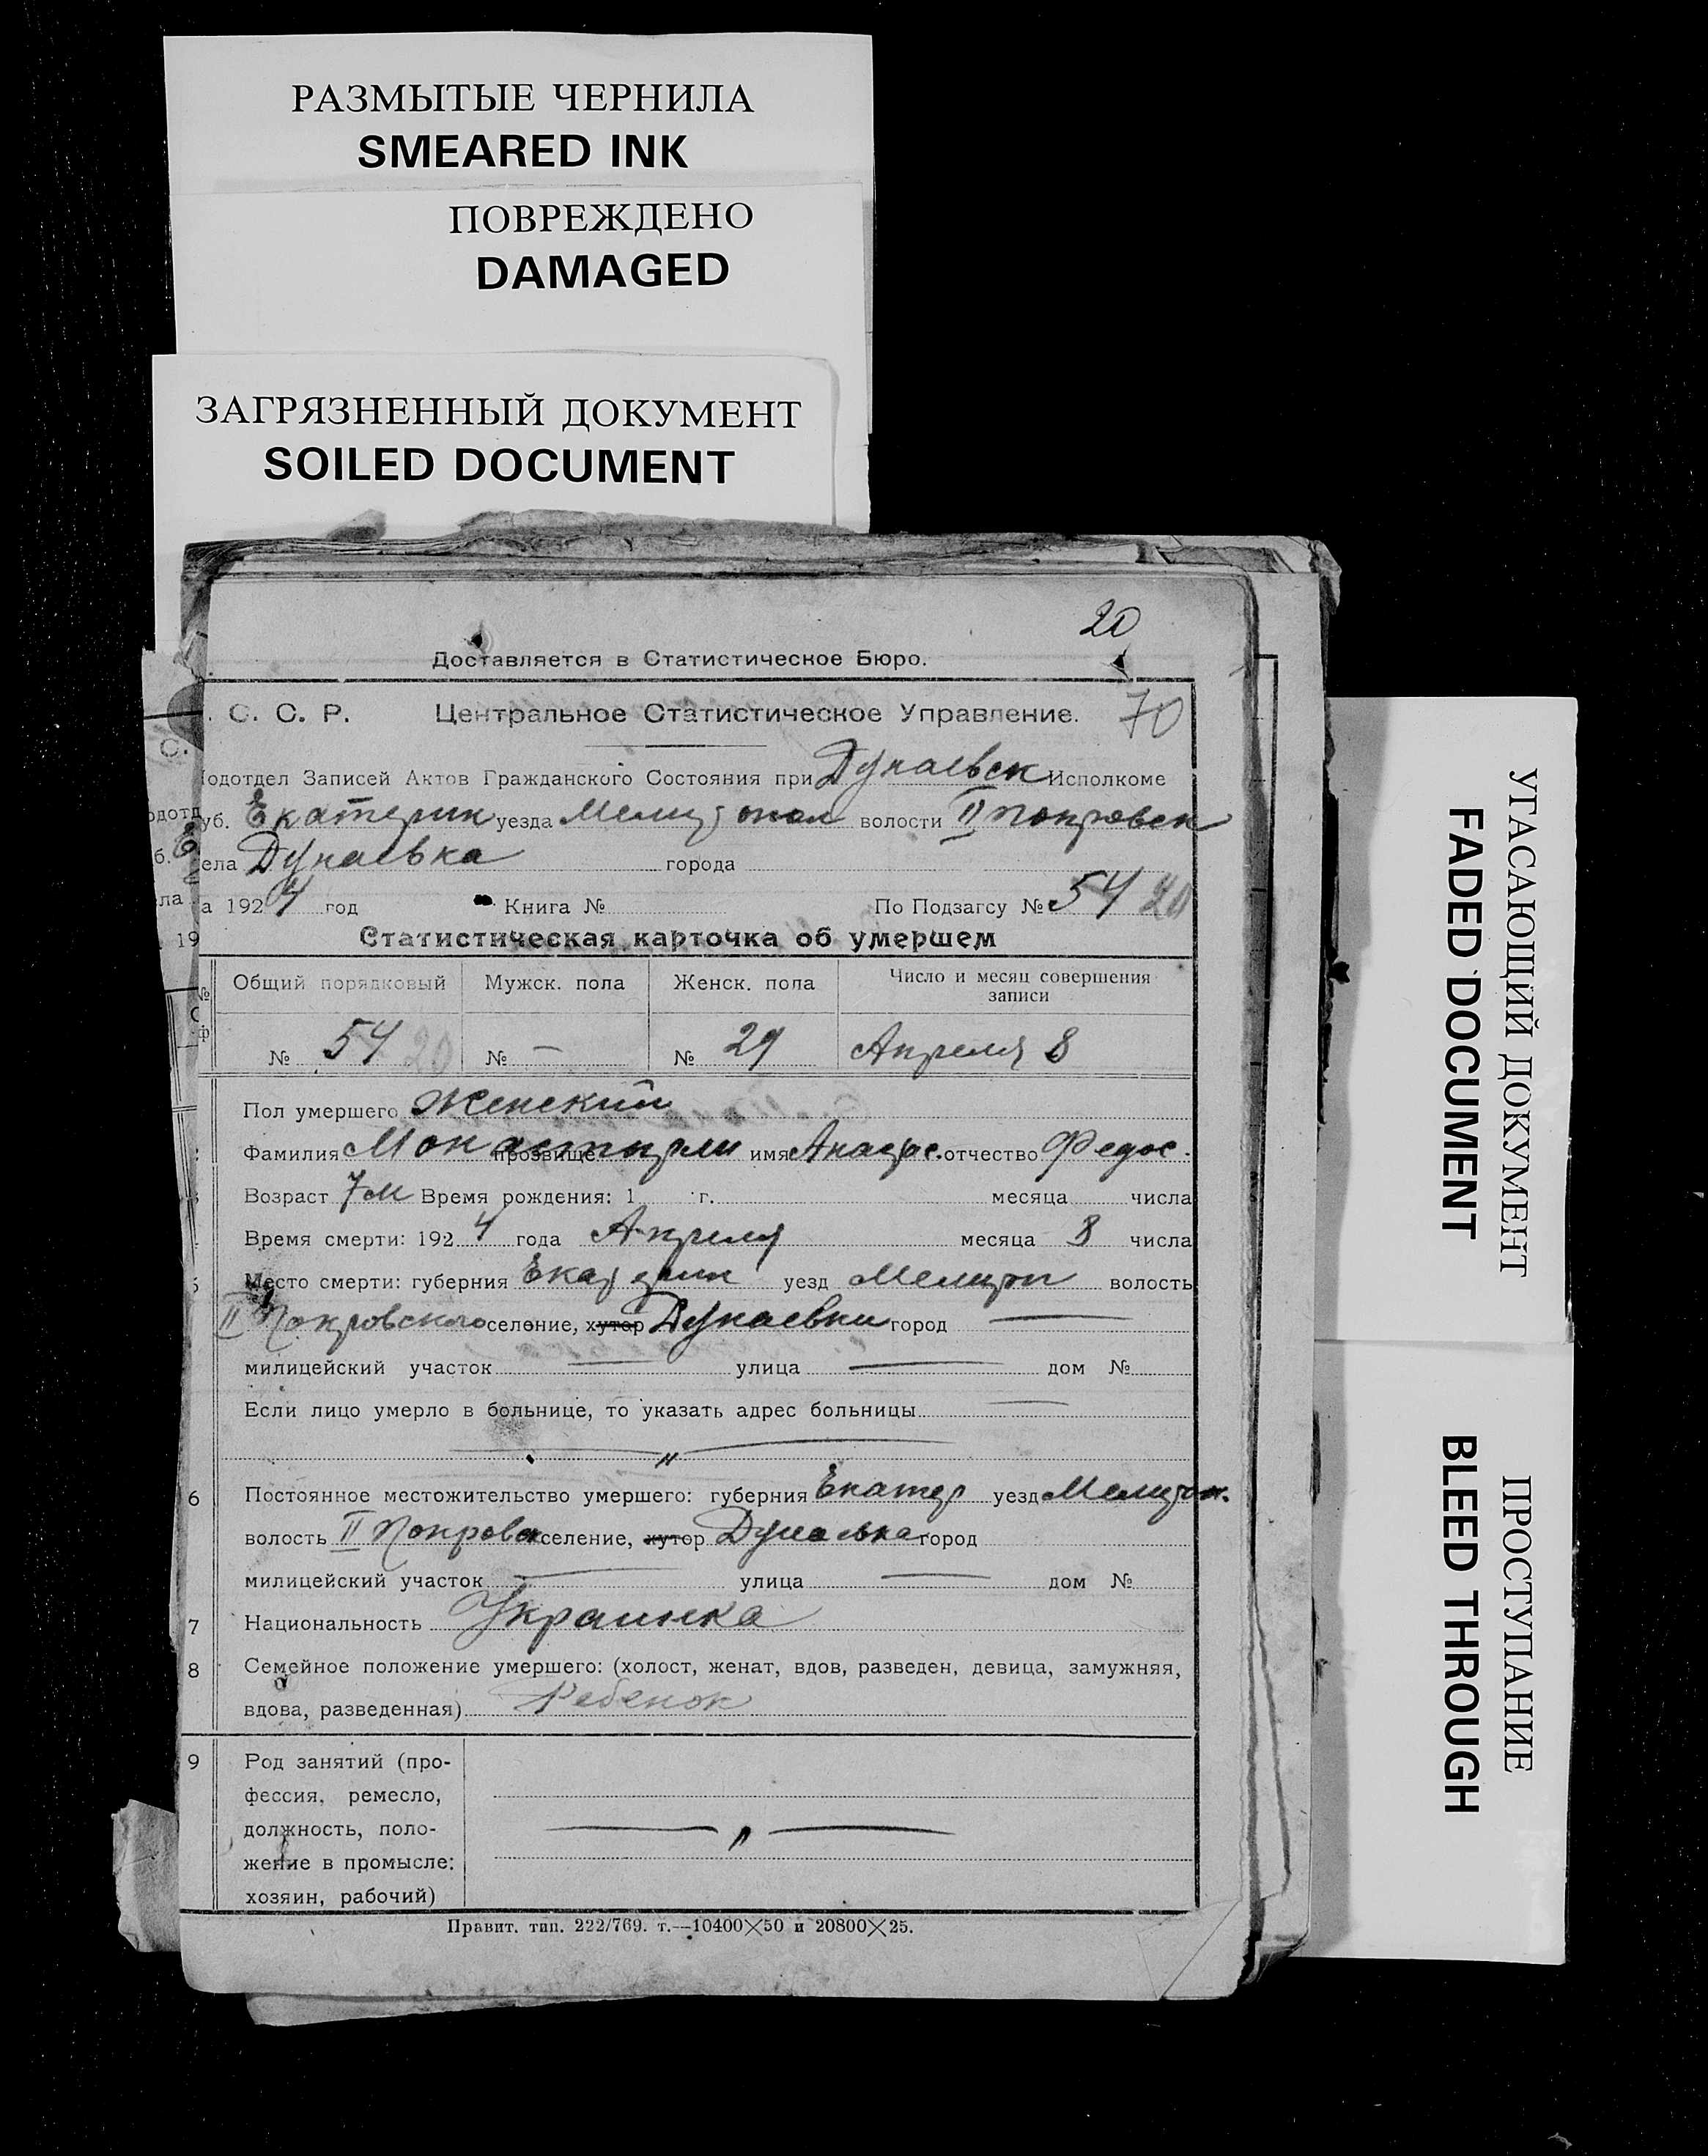 РАЗМЫТЫЕ ЧЕРНИЛА
SMEARED INK
ПОВРЕЖДЕНО
DAMAGED
ЗАГРЯЗНЕННЫЙ ДОКУМЕНТ
SOILED DOCUMENT
20
Доставляется в Статистическое Бюро.
. С. С. Р. Центральное Статистическое Управление. 70
одотдел Записей Актов Гражданского Состояния при Дунаевск Исполкоме
уб. Екатерин уезда Мелитопол волости II Покровск
ела Дунаевка города
а 1924 год Книга № По Подзагсу № 54 20
Статистическая карточка об умершем
Общий порядковый Мужск. пола Женск. пола Число и месяц совершения записи
№ 54 20 № — № 29 Апреля 8
Пол умершего Женский
Фамилия Монастырли прозвище имя Анастас. отчество Федос.
Возраст 7 м Время рождения: 1 г. месяца числа
Время смерти: 1924 года Апреля месяца 8 числа
Место смерти: губерния Екатерин уезд Мелитоп волость
II Покровского селение, хутор Дунаевки город —
милицейский участок — улица — дом №
Если лицо умерло в больнице, то указать адрес больницы —
— „ —
6 Постоянное местожительство умершего: губерния Екатер уезд Мелитоп.
волость II Покровск селение, хутор Дунаевка город
милицейский участок — улица — дом №
7 Национальность Украинка
8 Семейное положение умершего: (холост, женат, вдов, разведен, девица, замужняя,
вдова, разведенная) Ребенок
9 Род занятий (про-
фессия, ремесло,
должность, поло- — „ —
жение в промысле:
хозяин, рабочий)
Правит. тип. 222/769. т.—10400×50 и 20800×25.
УГАСАЮЩИЙ ДОКУМЕНТ
FADED DOCUMENT
ПРОСТУПАНИЕ
BLEED THROUGH